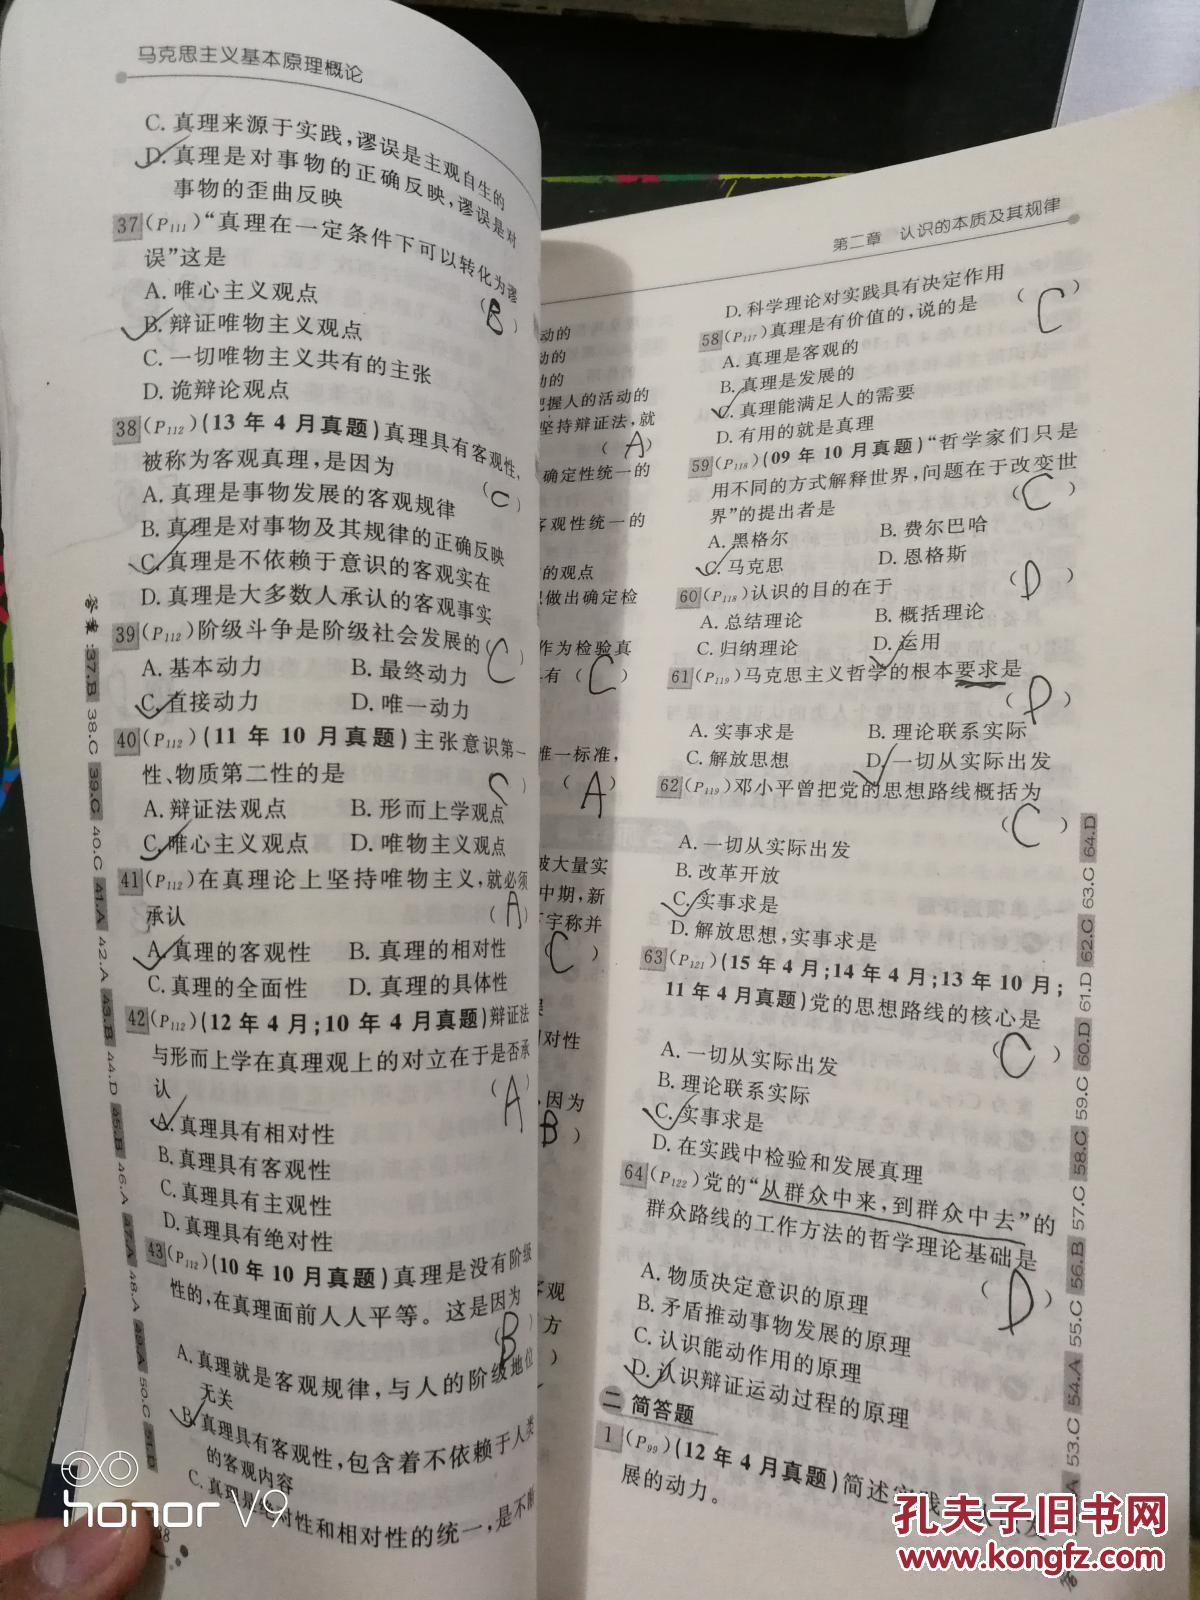 马克思主义基本原理概论
C. 真理来源于实践，谬误是主观自生的
D. 真理是对事物的正确反映，谬误是对
事物的歪曲反映
37 (P111) “真理在一定条件下可以转化为谬
误”这是
(B)
A. 唯心主义观点
B. 辩证唯物主义观点
C. 一切唯物主义共有的主张
D. 诡辩论观点
38 (P112) (13 年 4 月真题) 真理具有客观性，
被称为客观真理，是因为
(C)
A. 真理是事物发展的客观规律
B. 真理是对事物及其规律的正确反映
C. 真理是不依赖于意识的客观实在
D. 真理是大多数人承认的客观事实
39 (P112) 阶级斗争是阶级社会发展的
(C)
A. 基本动力 B. 最终动力
C. 直接动力 D. 唯一动力
40 (P112) (11 年 10 月真题) 主张意识第一
性、物质第二性的是
A. 辩证法观点 B. 形而上学观点
C. 唯心主义观点 D. 唯物主义观点
41 (P112) 在真理论上坚持唯物主义，就必须
承认 (A)
A. 真理的客观性 B. 真理的相对性
C. 真理的全面性 D. 真理的具体性
42 (P112) (12 年 4 月；10 年 4 月真题) 辩证法
与形而上学在真理观上的对立在于是否承
认 (A)
A. 真理具有相对性
B. 真理具有客观性
C. 真理具有主观性
D. 真理具有绝对性
43 (P112) (10 年 10 月真题) 真理是没有阶级
性的，在真理面前人人平等。这是因为
(B)
A. 真理就是客观规律，与人的阶级地位
无关
B. 真理具有客观性，包含着不依赖于人类
的客观内容
C. 真理是绝对性和相对性的统一，是不
答案：37.B 38.C 39.C 40.C 41.A 42.A 43.B 44.D 45.B 46.A 47.A 48.A 49.A 50.C 51.D
动的
动的
动的
把握人的活动的
坚持辩证法，就
(A)
确定性统一的
客观性统一的
的观点
做出确定检
作为检验真
有 (C)
唯一标准，
(A)
被大量实
中期，新
宇称并
(C)
对性
因为
B )
客观
方
)
第二章 认识的本质及其规律
D. 科学理论对实践具有决定作用
58 (P117) 真理是有价值的，说的是 (C)
A. 真理是客观的
B. 真理是发展的
C. 真理能满足人的需要
D. 有用的就是真理
59 (P118) (09 年 10 月真题) “哲学家们只是
用不同的方式解释世界，问题在于改变世
界”的提出者是 (C)
A. 黑格尔 B. 费尔巴哈
C. 马克思 D. 恩格斯
60 (P118) 认识的目的在于 (D)
A. 总结理论 B. 概括理论
C. 归纳理论 D. 运用
61 (P119) 马克思主义哲学的根本要求是
(D)
A. 实事求是 B. 理论联系实际
C. 解放思想 D. 一切从实际出发
62 (P119) 邓小平曾把党的思想路线概括为
(C)
A. 一切从实际出发
B. 改革开放
C. 实事求是
D. 解放思想，实事求是
63 (P121) (15 年 4 月；14 年 4 月；13 年 10 月；
11 年 4 月真题) 党的思想路线的核心是
(C)
A. 一切从实际出发
B. 理论联系实际
C. 实事求是
D. 在实践中检验和发展真理
64 (P122) 党的“从群众中来，到群众中去”的
群众路线的工作方法的哲学理论基础是
(D)
A. 物质决定意识的原理
B. 矛盾推动事物发展的原理
C. 认识能动作用的原理
D. 认识辩证运动过程的原理
二 简答题
1 (P99) (12 年 4 月真题) 简述实践
展的动力。
53.C 54.A 55.C 56.B 57.C 58.C 59.C 60.D 61.D 62.C 63.C 64.D
honor V9
孔夫子旧书网
www.kongfz.com